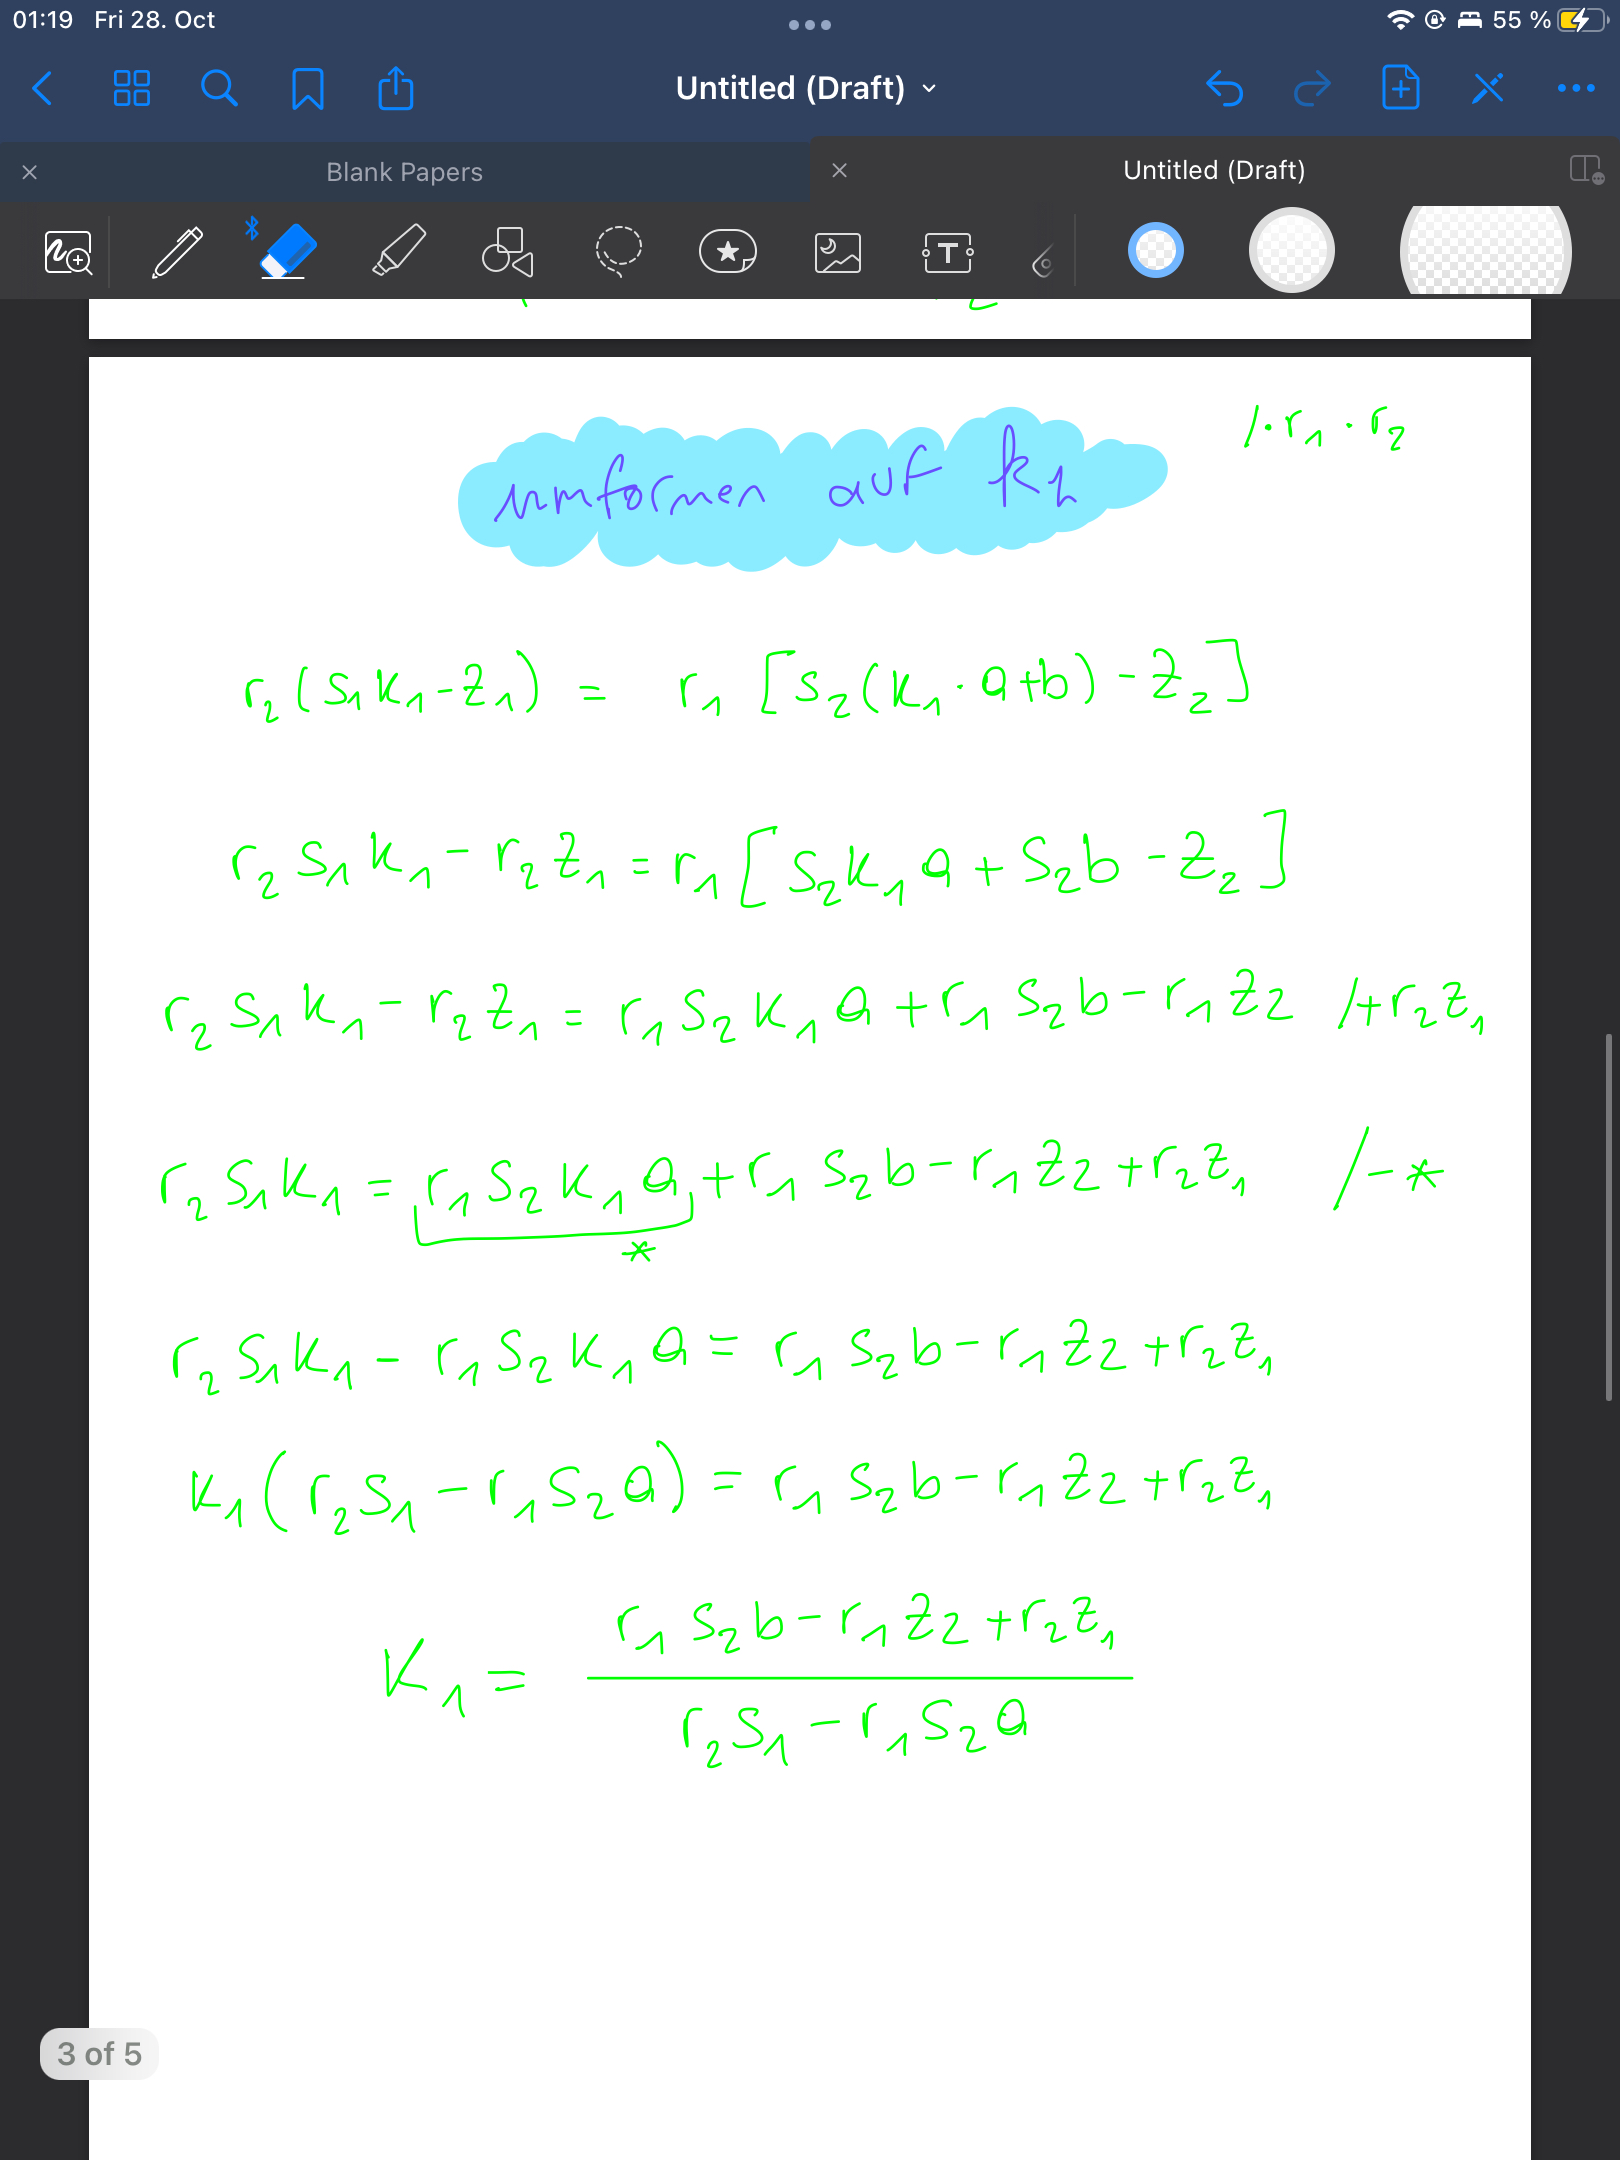 01:19 Fri 28. Oct 55 %
Untitled (Draft)
Blank Papers Untitled (Draft)
/·r₁·r₂
umformen auf k₁
r₂(s₁k₁-z₁) = r₁[s₂(k₁·a+b)-z₂]
r₂s₁k₁-r₂z₁=r₁[s₂k₁a+s₂b-z₂]
r₂s₁k₁-r₂z₁=r₁s₂k₁a+r₁s₂b-r₁z₂ /+r₂z₁
r₂s₁k₁=r₁s₂k₁a+r₁s₂b-r₁z₂+r₂z₁ /-*
*
r₂s₁k₁-r₁s₂k₁a=r₁s₂b-r₁z₂+r₂z₁
k₁(r₂s₁-r₁s₂a)=r₁s₂b-r₁z₂+r₂z₁
r₁s₂b-r₁z₂+r₂z₁
K₁=
r₂s₁-r₁s₂a
3 of 5